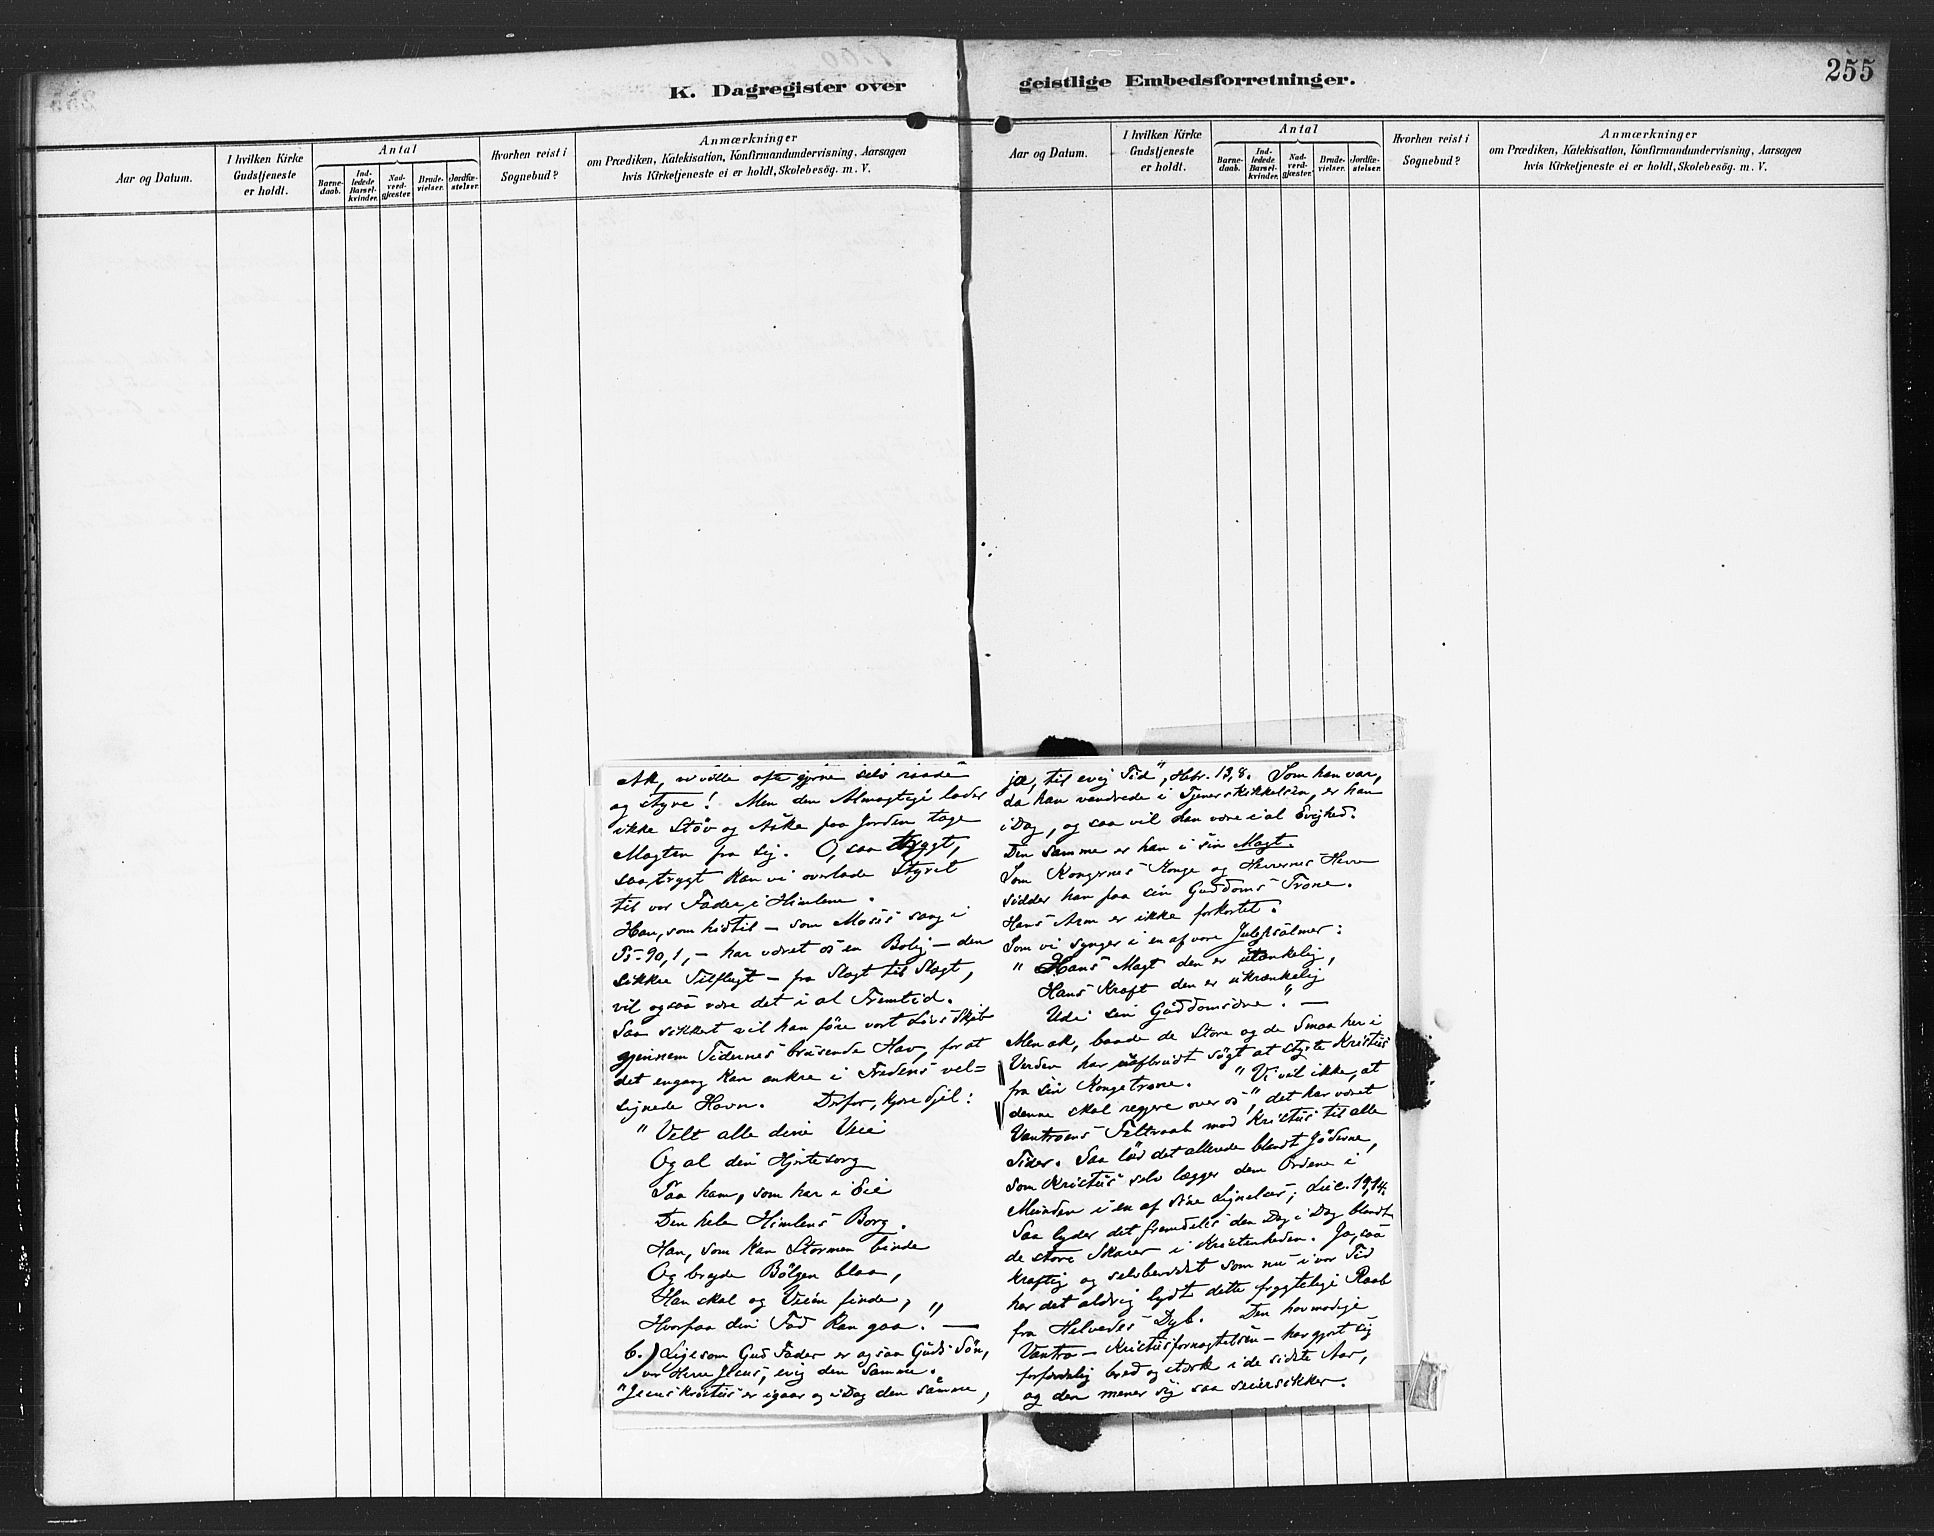 K. Dagregister over geistlige Embedsforretninger.
255
Aar og Datum.
I hvilken Kirke
Gudstjeneste
er holdt.
Antal
Barne-
daab.
Ind-
ledede
Barsel-
kvinder.
Nad-
verd-
gjæster.
Brude-
vielser.
Jordfæ-
stelser.
Hvorhen reist i
Sognebud?
Anmærkninger
om Prædiken, Katekisation, Konfirmandundervisning, Aarsagen
hvis Kirketjeneste ei er holdt, Skolebesög. m. V.
Aar og Datum.
I hvilken Kirke
Gudstjeneste
er holdt.
Antal
Barne-
daab.
Ind-
ledede
Barsel-
kvinder.
Nad-
verd-
gjæster.
Brude-
vielser.
Jordfæ-
stelser.
Hvorhen reist i
Sognebud?
Anmærkninger
om Prædiken, Katekisation, Konfirmandundervisning, Aarsagen
hvis Kirketjeneste ei er holdt, Skolebesög. m. V.
Ak, vi vilde ofte gjerne selv raade
og styre! Men den Almægtige lader
ikke Støv og Aske paa Jorden tage
Magten fra sig. O, saa trygt,
saa trygt kan vi overlade Styret
til vor Fader i Himlene.
Han, som hidtil — som Moses sang i
Ps. 90, 1, — har været os en Bolig — den
sikkre Tilflugt — fra Slægt til Slægt,
vil ogsaa være det i al Fremtid.
Saa sikkert vil han føre vort Livs Skib
gjennem Tidernes brusende Hav, for at
det engang kan ankre i Fredens vel=
signede Havn. Derfor, kjære Sjel:
"Velt alle dine Veie
Og al din Hjertesorg
Paa ham, som har i Eie
Den hele Himlens Borg.
Han, som kan Stormen binde
Og bryde Bølgen blaa,
Han skal og Veien finde,
Hvorpaa din Fod kan gaa." —
6.) Ligesom Gud Fader er ogsaa Guds Søn,
vor Herre Jesus, evig den Samme.
"Jesus Kristus er igaar og idag den samme,
ja, til evig Tid", Hebr. 13, 8. Som han var,
da han vandrede i Tjenerskikkelsen, er han
idag, og saa vil han være i al Evighed.
Den samme er han i sin Magt.
Som Kongernes Konge og Herrernes Herre
sidder han paa sin Guddoms Trone.
Hans Arm er ikke forkortet.
Som vi synger i en af vore Julepsalmer:
"Hans Magt den er utænkelig,
Hans Kraft den er ukrænkelig
Udi sin Guddomsære." —
Men ak, baade de Store og de Smaa her i
Verden har uafbrudt søgt at styrte Kristus
fra sin Kongetrone. "Vi vil ikke, at
denne skal regjere over os", det har været
Vantroens Feltraab mod Kristus til alle
Tider. Saa lød det allerede blandt Jøderne,
som Kristus selv lægger dem Ordene i
Munden i en af sine Lignelser, Luc. 19,14.
Saa lyder det fremdeles den Dag i Dag blandt
de store Skarer i Kristenheden. Ja, saa
kraftig og selvbevidst som nu i vor Tid
har det aldrig lydt dette frygtelige Raab
fra Helvedes Dyb. Den hovmodige
Vantro — Kristusfornægtelsen — har gjort sig
forfærdelig bred og stærk i de sidste Aar,
og den mener sig saa seiersikker.